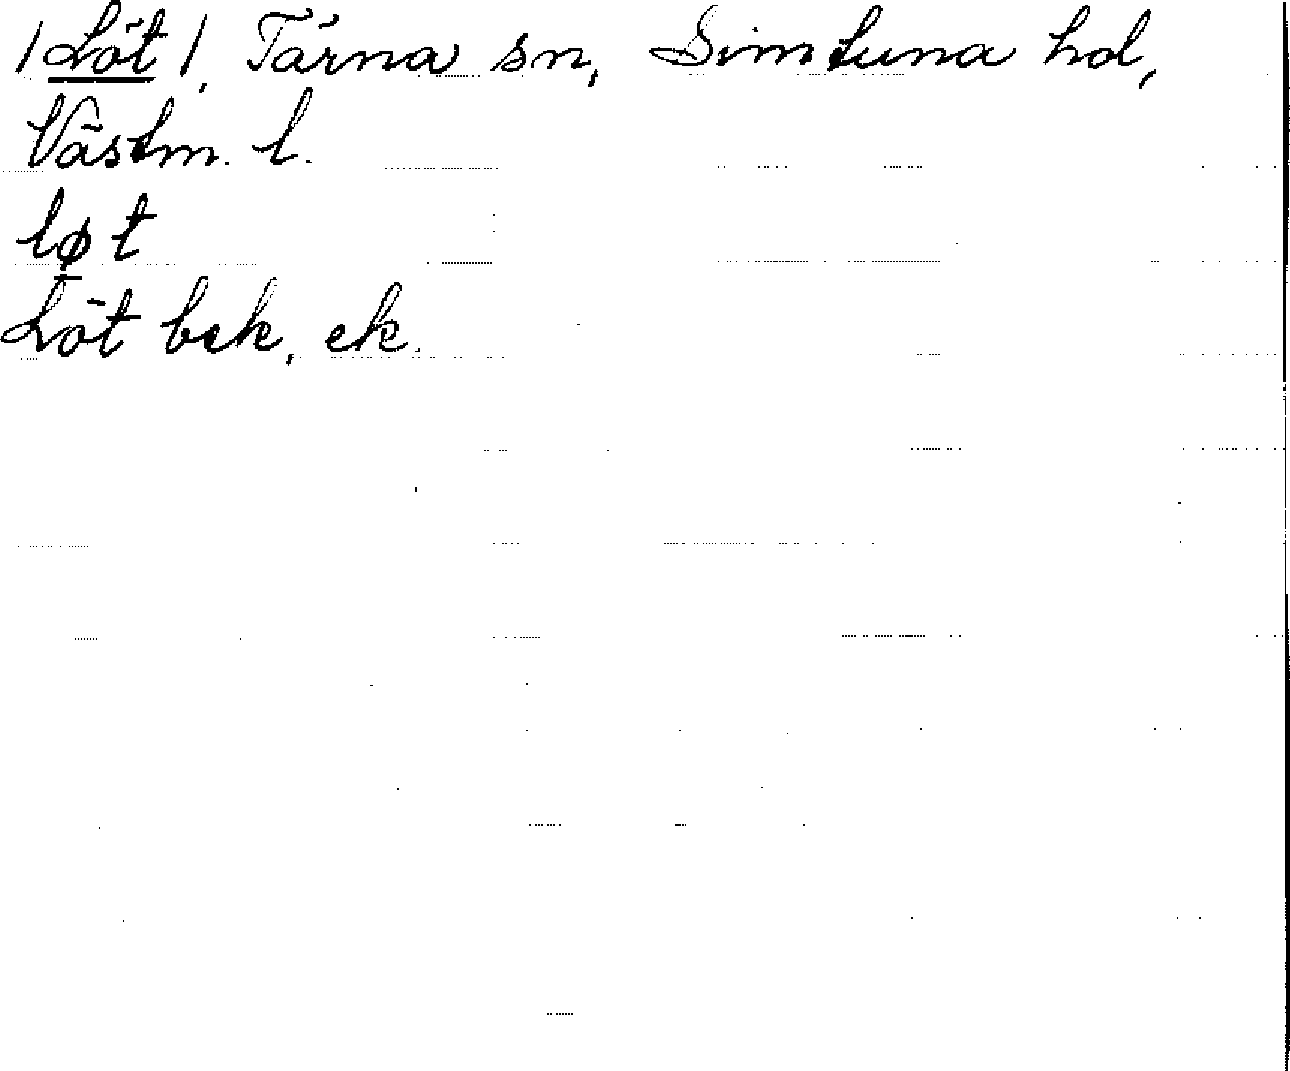 /Löt/, Tärna sn, Simtuna hd,
Västm. l.
løt
Löt bek, ek.